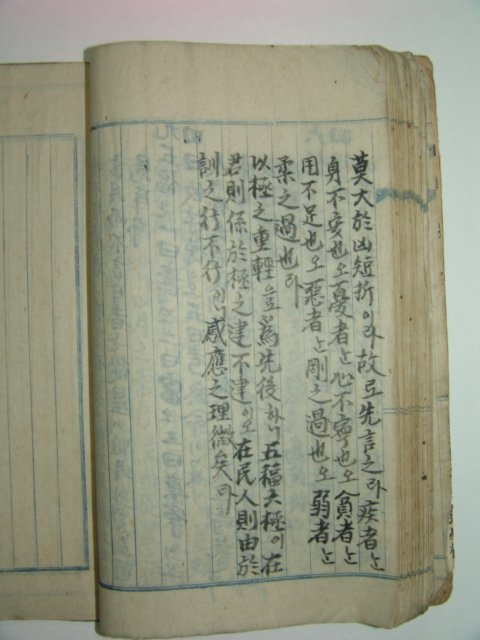 莫大於凶短折이라故로先言之라疾者는
身不安也오憂者는心不寧也오貧者는
用不足也오惡者는剛之過也오弱者는
柔之過也라
以極之重輕으로爲先後하니五福六極이在
君則係於極之建不建이오在民人則由於
訓之行不行이니感應之理微矣라